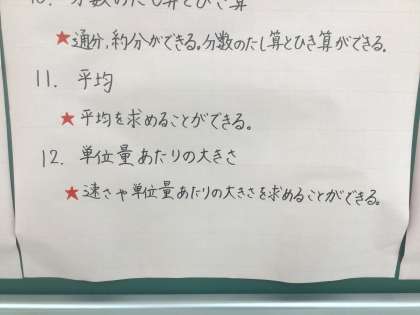 10. 分数のたし算とひき算
★通分、約分ができる。分数のたし算とひき算ができる。
11. 平均
★平均を求めることができる。
12. 単位量あたりの大きさ
★速さや単位量あたりの大きさを求めることができる。